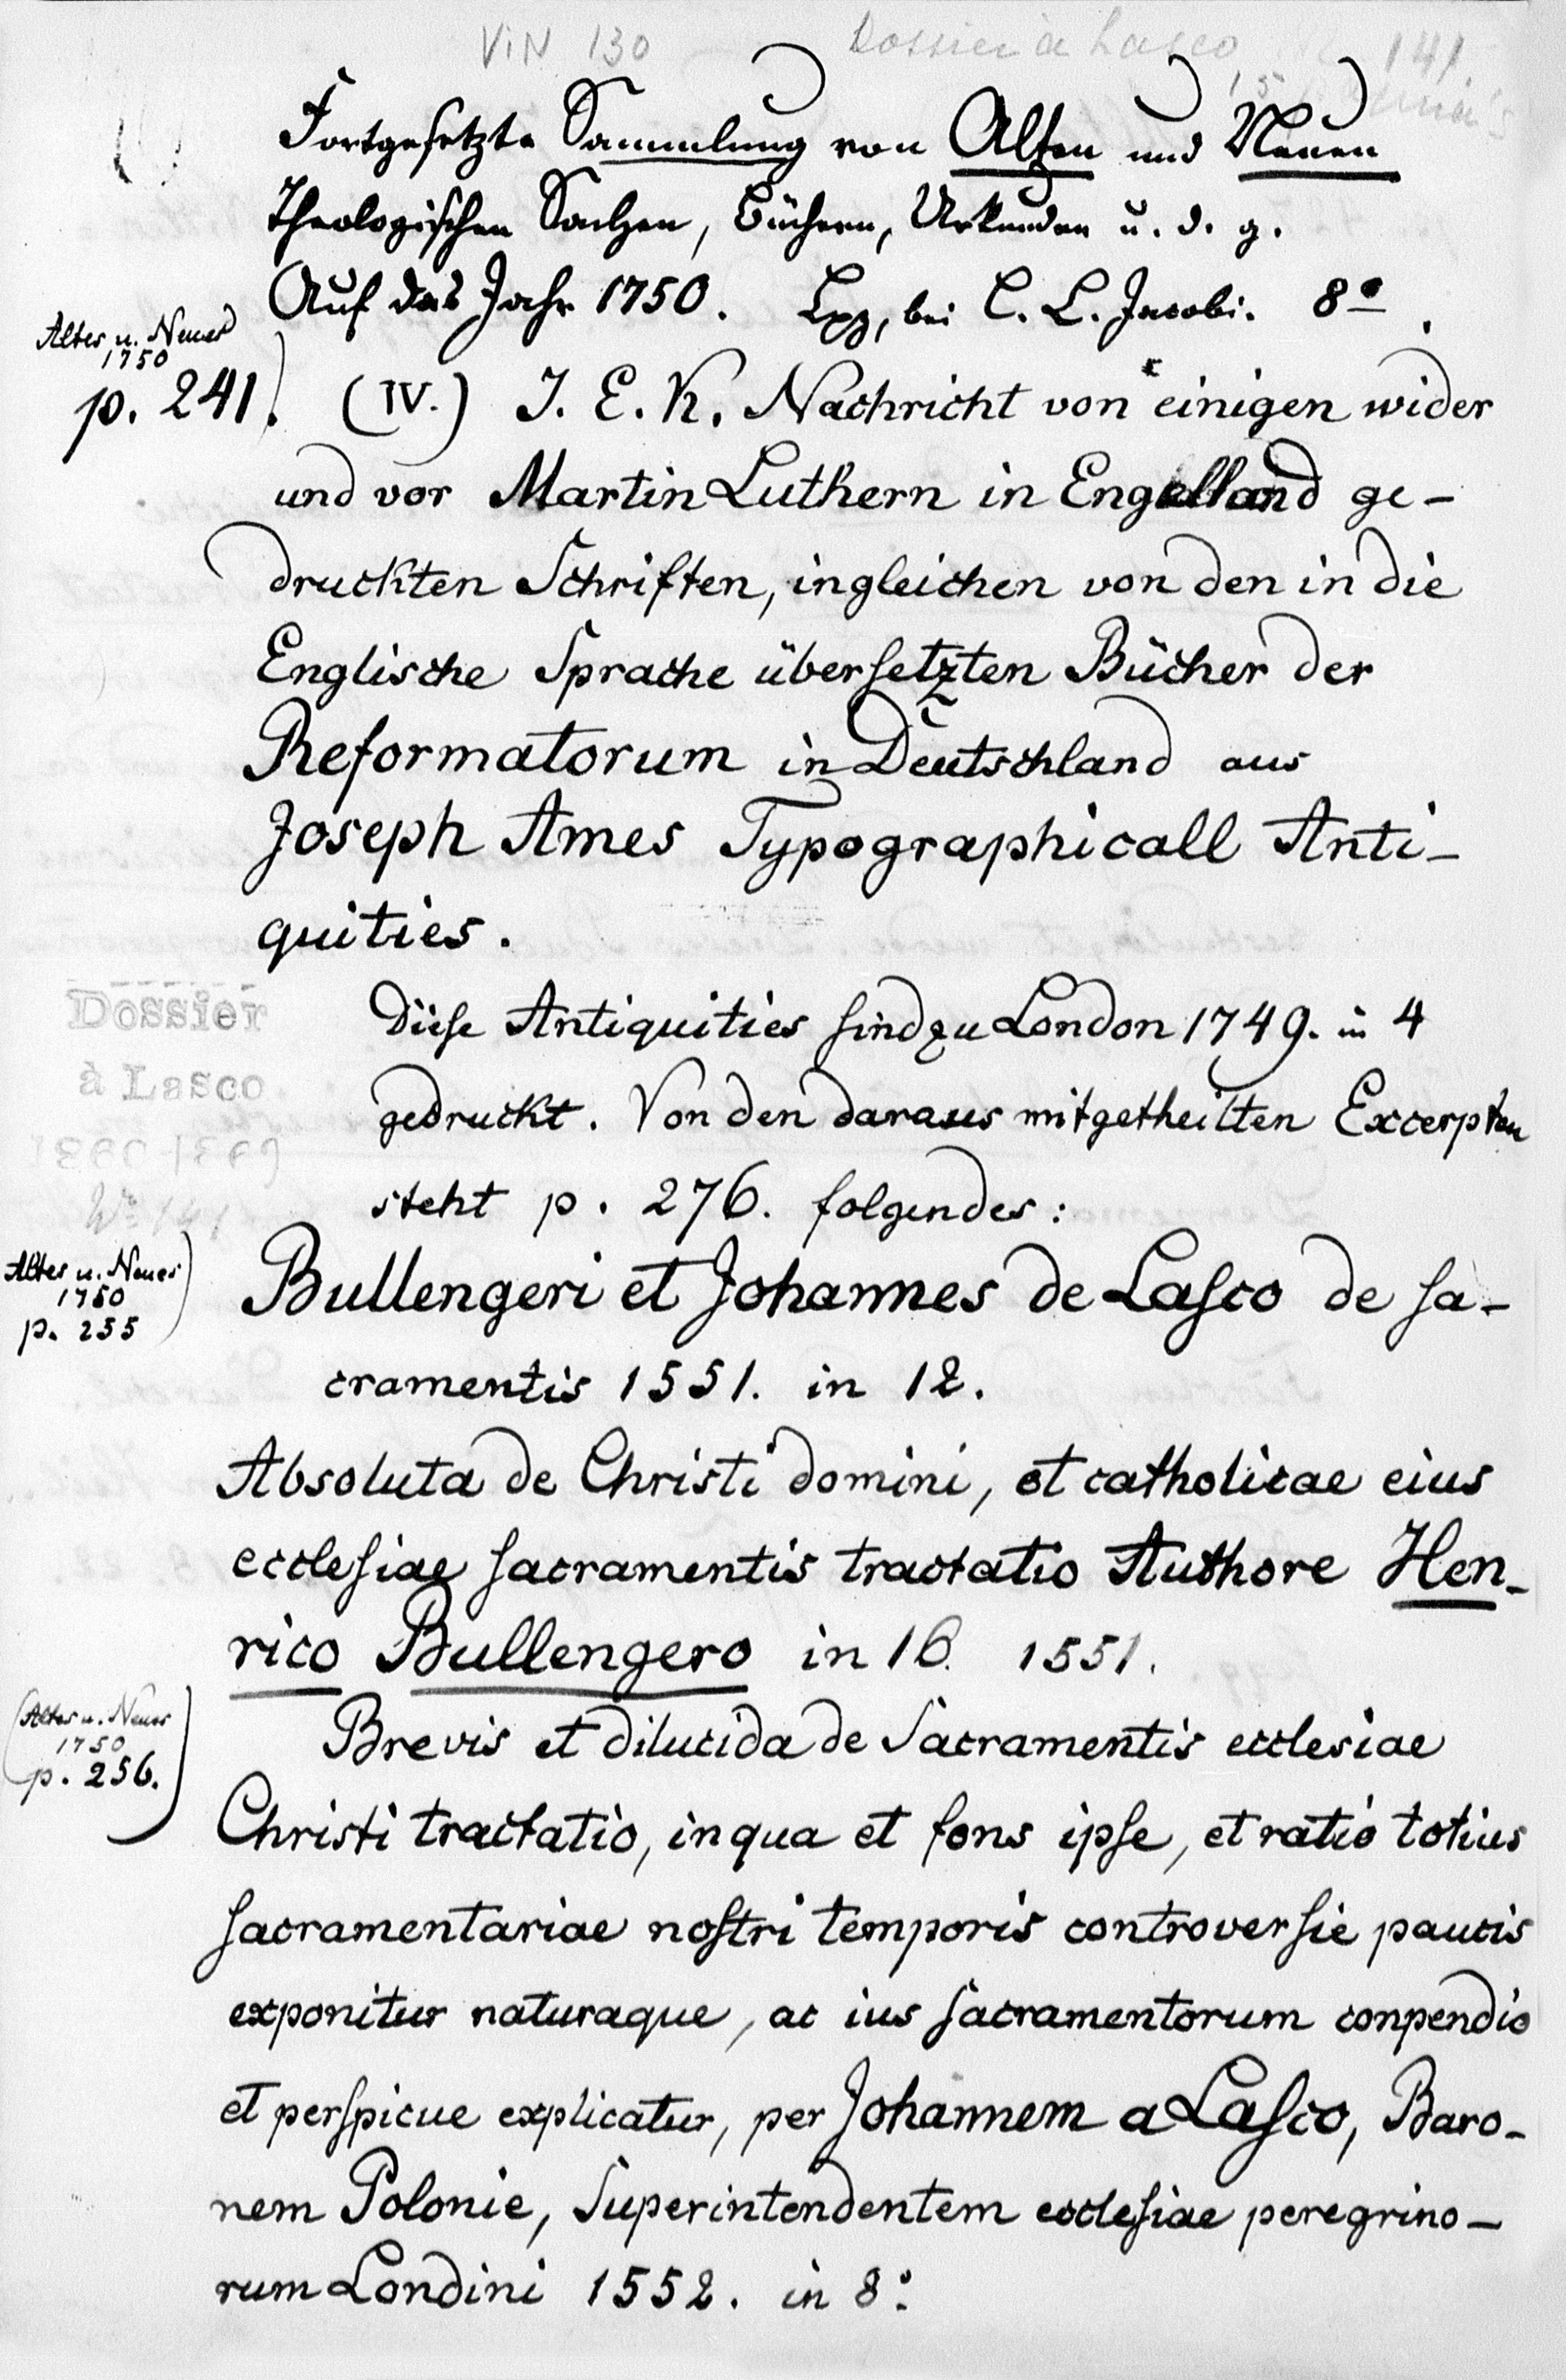 VIN 130 Dossier à Lasco 141.
Fortgesetzte Sammlung von Alten und Neuen
Theologischen Sachen, Büchern, Urkunden u. d. g.
Auf das Jahr 1750. Lpz, bei C. L. Jacobi. 8º.
Altes u. Neues
1750
p. 241.
(IV.) J. E. K. Nachricht von einigen wider
und vor Martin Luthern in Engelland ge-
druckten Schriften, ingleichen von den in die
Englische Sprache übersetzten Bücher der
Reformatorum in Deutschland aus
Joseph Ames Typographicall Anti-
quities.
Dossier
à Lasco
Diese Antiquities sind zu London 1749. in 4
gedruckt. Von den daraus mitgetheilten Excerpten
steht p. 276. folgendes:
Altes u. Neues
1750
p. 255
Bullengeri et Johannes de Lasco de sa-
cramentis 1551. in 12.
Absoluta de Christi domini, et catholicae eius
ecclesiae sacramentis tractatio Authore Hen-
rico Bullengero in 16. 1551.
(Altes u. Neues
1750
p. 256.)
Brevis et dilucida de Sacramentis ecclesiae
Christi tractatio, in qua et fons ipse, et ratio totius
sacramentariae nostri temporis controversie paucis
exponitur naturaque, ac ius sacramentorum conpendio
et perspicue explicatur, per Johannem a Lasco, Baro-
nem Polonie, Superintendentem ecclesiae peregrino-
rum Londini 1552. in 8º.